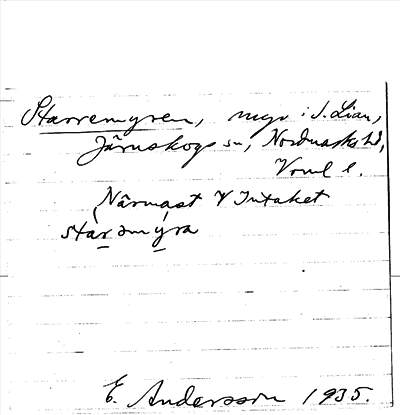 Starremyren, myr i S. Lian,
Järnskogs sn, Nordmarks hd,
Värml l.
Närmast V Intaket
starəmy̠ra
E. Andersson 1935.